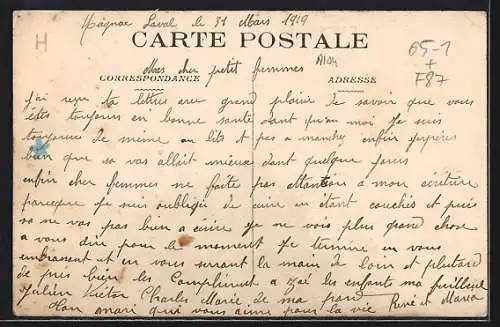 Magnac Laval le 31 Mars 1919
CARTE POSTALE
H
65-1
+
F87
Mes cher petit femmes
CORRESPONDANCE
ADRESSE
j'ai reçu ta lettres avec grand plaisir de savoir que vous
êtes toujours en bonne santé dant qu'an moi je suis
toujours de même au lits et pas a manchez enfin j'espères
bien que sa vas allait mieux dant quelque jours
enfin cher femmes ne faite pas attantion a mon écriture
parceque je suis oubligé de écrire en étant couchés et puis
sa ne vas pas bien a écrire je ne vois plus grand chose
a vous dire pour le moment Je termine en vous
embrasent et en vous serrant la main de loin et plutard
de près bien les Compliment a les enfants ma
Julien Victor Charles Marie de ma part René et Maria
Ton mari qui vous aime pour la vie